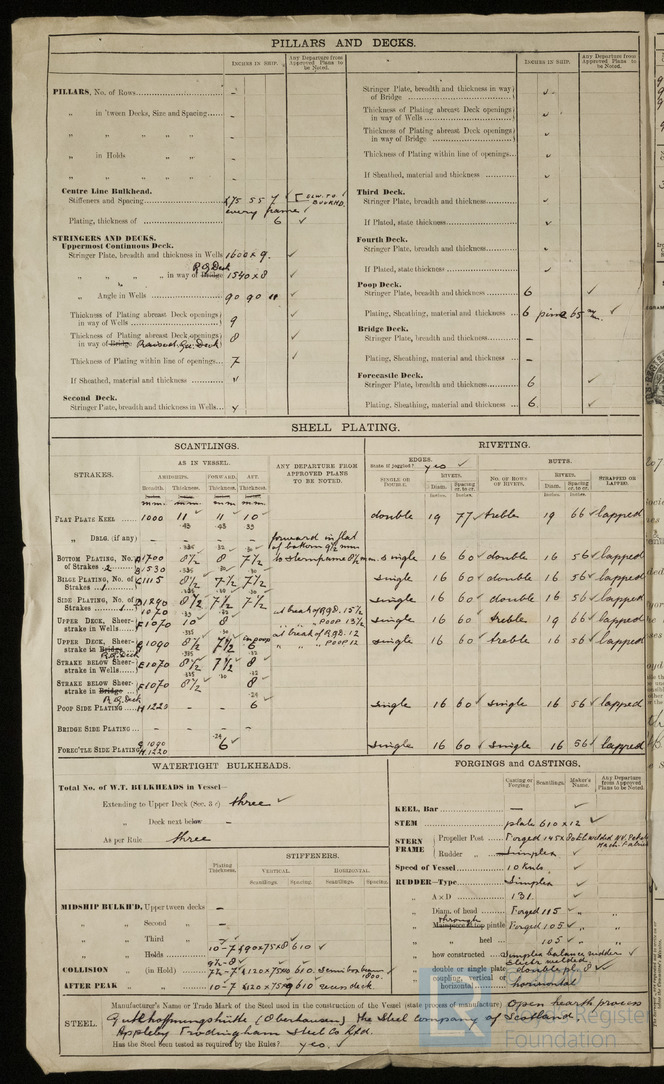 PILLARS AND DECKS.
INCHES IN SHIP.
Any Departure from Approved Plans to be Noted.
PILLARS, No. of Rows
„ in 'tween Decks, Size and Spacing
„ „ „ „
„ in Holds
„ „ „ „
Centre Line Bulkhead.
Stiffeners and Spacing
every frame
Plating, thickness of 6 ✓
STRINGERS AND DECKS.
Uppermost Continuous Deck.
Stringer Plate, breadth and thickness in Wells 1600 x 9. ✓
„ „ „ „ in way of Bridge R.Q.Deck 1540 x 8 ✓
„ Angle in Wells 90 90 11 ✓
Thickness of Plating abreast Deck openings in way of Wells 9 ✓
Thickness of Plating abreast Deck openings in way of Bridge Raised Qr. Deck 8 ✓
Thickness of Plating within line of openings 7 ✓
If Sheathed, material and thickness ✓
Second Deck.
Stringer Plate, breadth and thickness in Wells ✓
INCHES IN SHIP.
Any Departure from Approved Plans to be Noted.
Stringer Plate, breadth and thickness in way of Bridge ✓
Thickness of Plating abreast Deck openings in way of Wells ✓
Thickness of Plating abreast Deck openings in way of Bridge ✓
Thickness of Plating within line of openings ✓
If Sheathed, material and thickness ✓
Third Deck.
Stringer Plate, breadth and thickness ✓
If Plated, state thickness ✓
Fourth Deck.
Stringer Plate, breadth and thickness ✓
If Plated, state thickness ✓
Poop Deck.
Stringer Plate, breadth and thickness 6 ✓
Plating, Sheathing, material and thickness 6 pine 65 ✓
Bridge Deck.
Stringer Plate, breadth and thickness –
Plating, Sheathing, material and thickness –
Forecastle Deck.
Stringer Plate, breadth and thickness 6 ✓
Plating, Sheathing, material and thickness 6 ✓
SHELL PLATING.
SCANTLINGS.
RIVETING.
STRAKES.
AS IN VESSEL.
AMIDSHIPS. FORWARD. AFT.
Breadth. Thickness. Thickness. Thickness.
ANY DEPARTURE FROM APPROVED PLANS TO BE NOTED.
EDGES.
State if joggled? yes ✓
SINGLE OR DOUBLE.
RIVETS.
Diam. Spacing cr. to cr.
BUTTS.
No. OF ROWS OF RIVETS.
RIVETS.
Diam. Spacing cr. to cr.
STRAPPED OR LAPPED.
FLAT PLATE KEEL 1000 11 11 10 double 19 77 ✓ treble 19 66 ✓ lapped
„ DBLG. (if any) – – – –
forward in flat of bottom 9½ mm
BOTTOM PLATING, No. of Strakes 2 1700 8½ 8 7½ single 16 60 ✓ double 16 56 ✓ lapped
1530
BILGE PLATING, No. of Strakes 1 C 1115 8½ 7½ 7½ single 16 60 ✓ double 16 56 ✓ lapped
SIDE PLATING, No. of Strakes 1 1290 8½ 7½ 7½ single 16 60 ✓ double 16 56 ✓ lapped
1070
at break of RQD. 15½
UPPER DECK, Sheerstrake in Wells F 1070 10 8 single 16 60 ✓ treble 19 66 ✓ lapped
„ „ „ POOP 13½
at break of RQD. 12
UPPER DECK, Sheerstrake in Bridge R.Q.Deck G 1090 8½ 7½ in poop 6 single 16 60 ✓ treble 16 56 ✓ lapped
„ „ POOP 12
STRAKE BELOW Sheerstrake in Wells E 1070 8½ 7½ 8
STRAKE BELOW Sheerstrake in Bridge R.Q.Deck F 1070 8½ 8
POOP SIDE PLATING H 1220 – – 6 single 16 60 ✓ single 16 56 ✓ lapped
BRIDGE SIDE PLATING – – – –
FOREC'TLE SIDE PLATING G 1090 6 ✓ single 16 60 ✓ single 16 56 ✓ lapped
H 1220
WATERTIGHT BULKHEADS.
Total No. of W.T. BULKHEADS in Vessel—
Extending to Upper Deck (Sec. 3 c) three ✓
„ Deck next below –
As per Rule three
Plating Thickness.
STIFFENERS.
VERTICAL. HORIZONTAL.
Scantlings. Spacing. Scantlings. Spacing.
MIDSHIP BULKH'D, Upper tween decks –
„ Second „ –
„ Third „
„ Holds 10–7 90x75x8 610 ✓
COLLISION (in Hold) 7½–7 120x75x10 610
AFTER PEAK „ 10–7 120x75x9 610 recess deck.
FORGINGS and CASTINGS.
Casting or Forging. Scantlings. Maker's Name. Any Departure from Approved Plans to be Noted.
KEEL, Bar – ✓
STEM plate 610 x 12 ✓
STERN FRAME Propeller Post Forged
Rudder „ Simplex ✓
Speed of Vessel 10 knots ✓
RUDDER—Type Simplex ✓
„ A x D 131. ✓
„ Diam. of head Forged 115 ✓ „ „
„ Mainpiece at top pintle through Forged 105 ✓ „ „
„ „ heel 105 ✓ „ „
„ how constructed Simplex balance rudder ✓
electr welded
„ double or single plate double pl. 8 ✓
„ coupling, vertical or horizontal horizontal
STEEL.
Manufacturer's Name or Trade Mark of the Steel used in the construction of the Vessel (state process of manufacture) Open hearth process
Gutehoffnungshütte (Oberhausen) The Steel Company of Scotland.
Appleby Frodingham Steel Co Ltd.
Has the Steel been tested as required by the Rules? yes.
Lloyd's Register Foundation